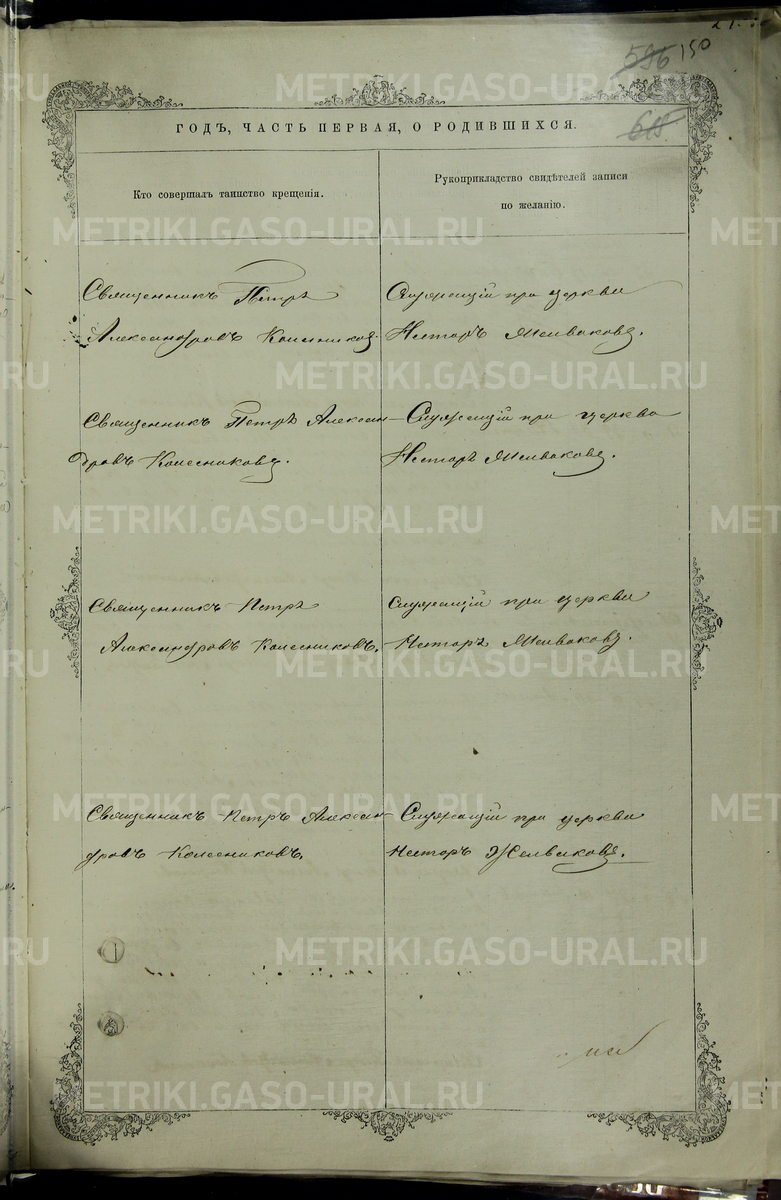 596 150
615
ГОДЪ, ЧАСТЬ ПЕРВАЯ, О РОДИВШИХСЯ.
Кто совершалъ таинство крещенія.
Рукоприкладство свидѣтелей записи
по желанію.
Священникъ Петръ
Александровъ Колесниковъ.
Служащій при церкви
Несторъ Желваковъ.
Священникъ Петръ Алексан-
дровъ Колесниковъ.
Служащій при церкви
Несторъ Желваковъ.
Священникъ Петръ
Александровъ Колесниковъ.
Служащій при церкви
Несторъ Желваковъ.
Священникъ Петръ Алексан-
дровъ Колесниковъ.
Служащій при церкви
Несторъ Желваковъ.
METRIKI.GASO-URAL.RU